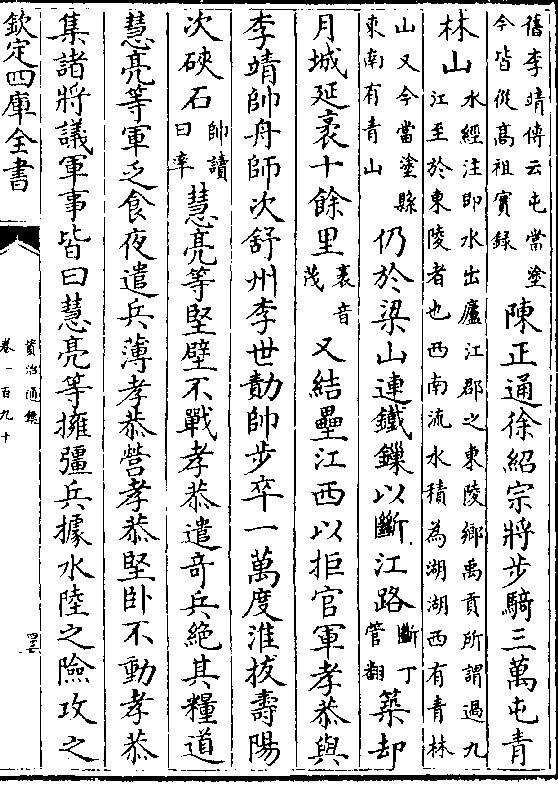 舊李靖傳云屯當塗
今皆從髙祖實録
陳正通徐紹宗將步騎三萬屯青
林山
水經注即水出廬江郡之東陵鄉禹貢所謂過九
江至於東陵者也西南流水積為湖湖西有青林
山又今當塗縣
東南有青山
仍於梁山連鐵鏁以斷江路
斷丁
管翻
築却
月城延袤十餘里
袤音
茂
又結壘江西以拒官軍孝恭與
李靖帥舟師次舒州李世勣帥步卒一萬度淮拔壽陽
次硤石
帥讀
曰率
慧亮等堅壁不戰孝恭遣奇兵絶其糧道
慧亮等軍乏食夜遣兵薄孝恭營孝恭堅卧不動孝恭
集諸將議軍事皆曰慧亮等擁彊兵據水陸之險攻之
欽定四庫全書
資治通鑑
卷一百九十